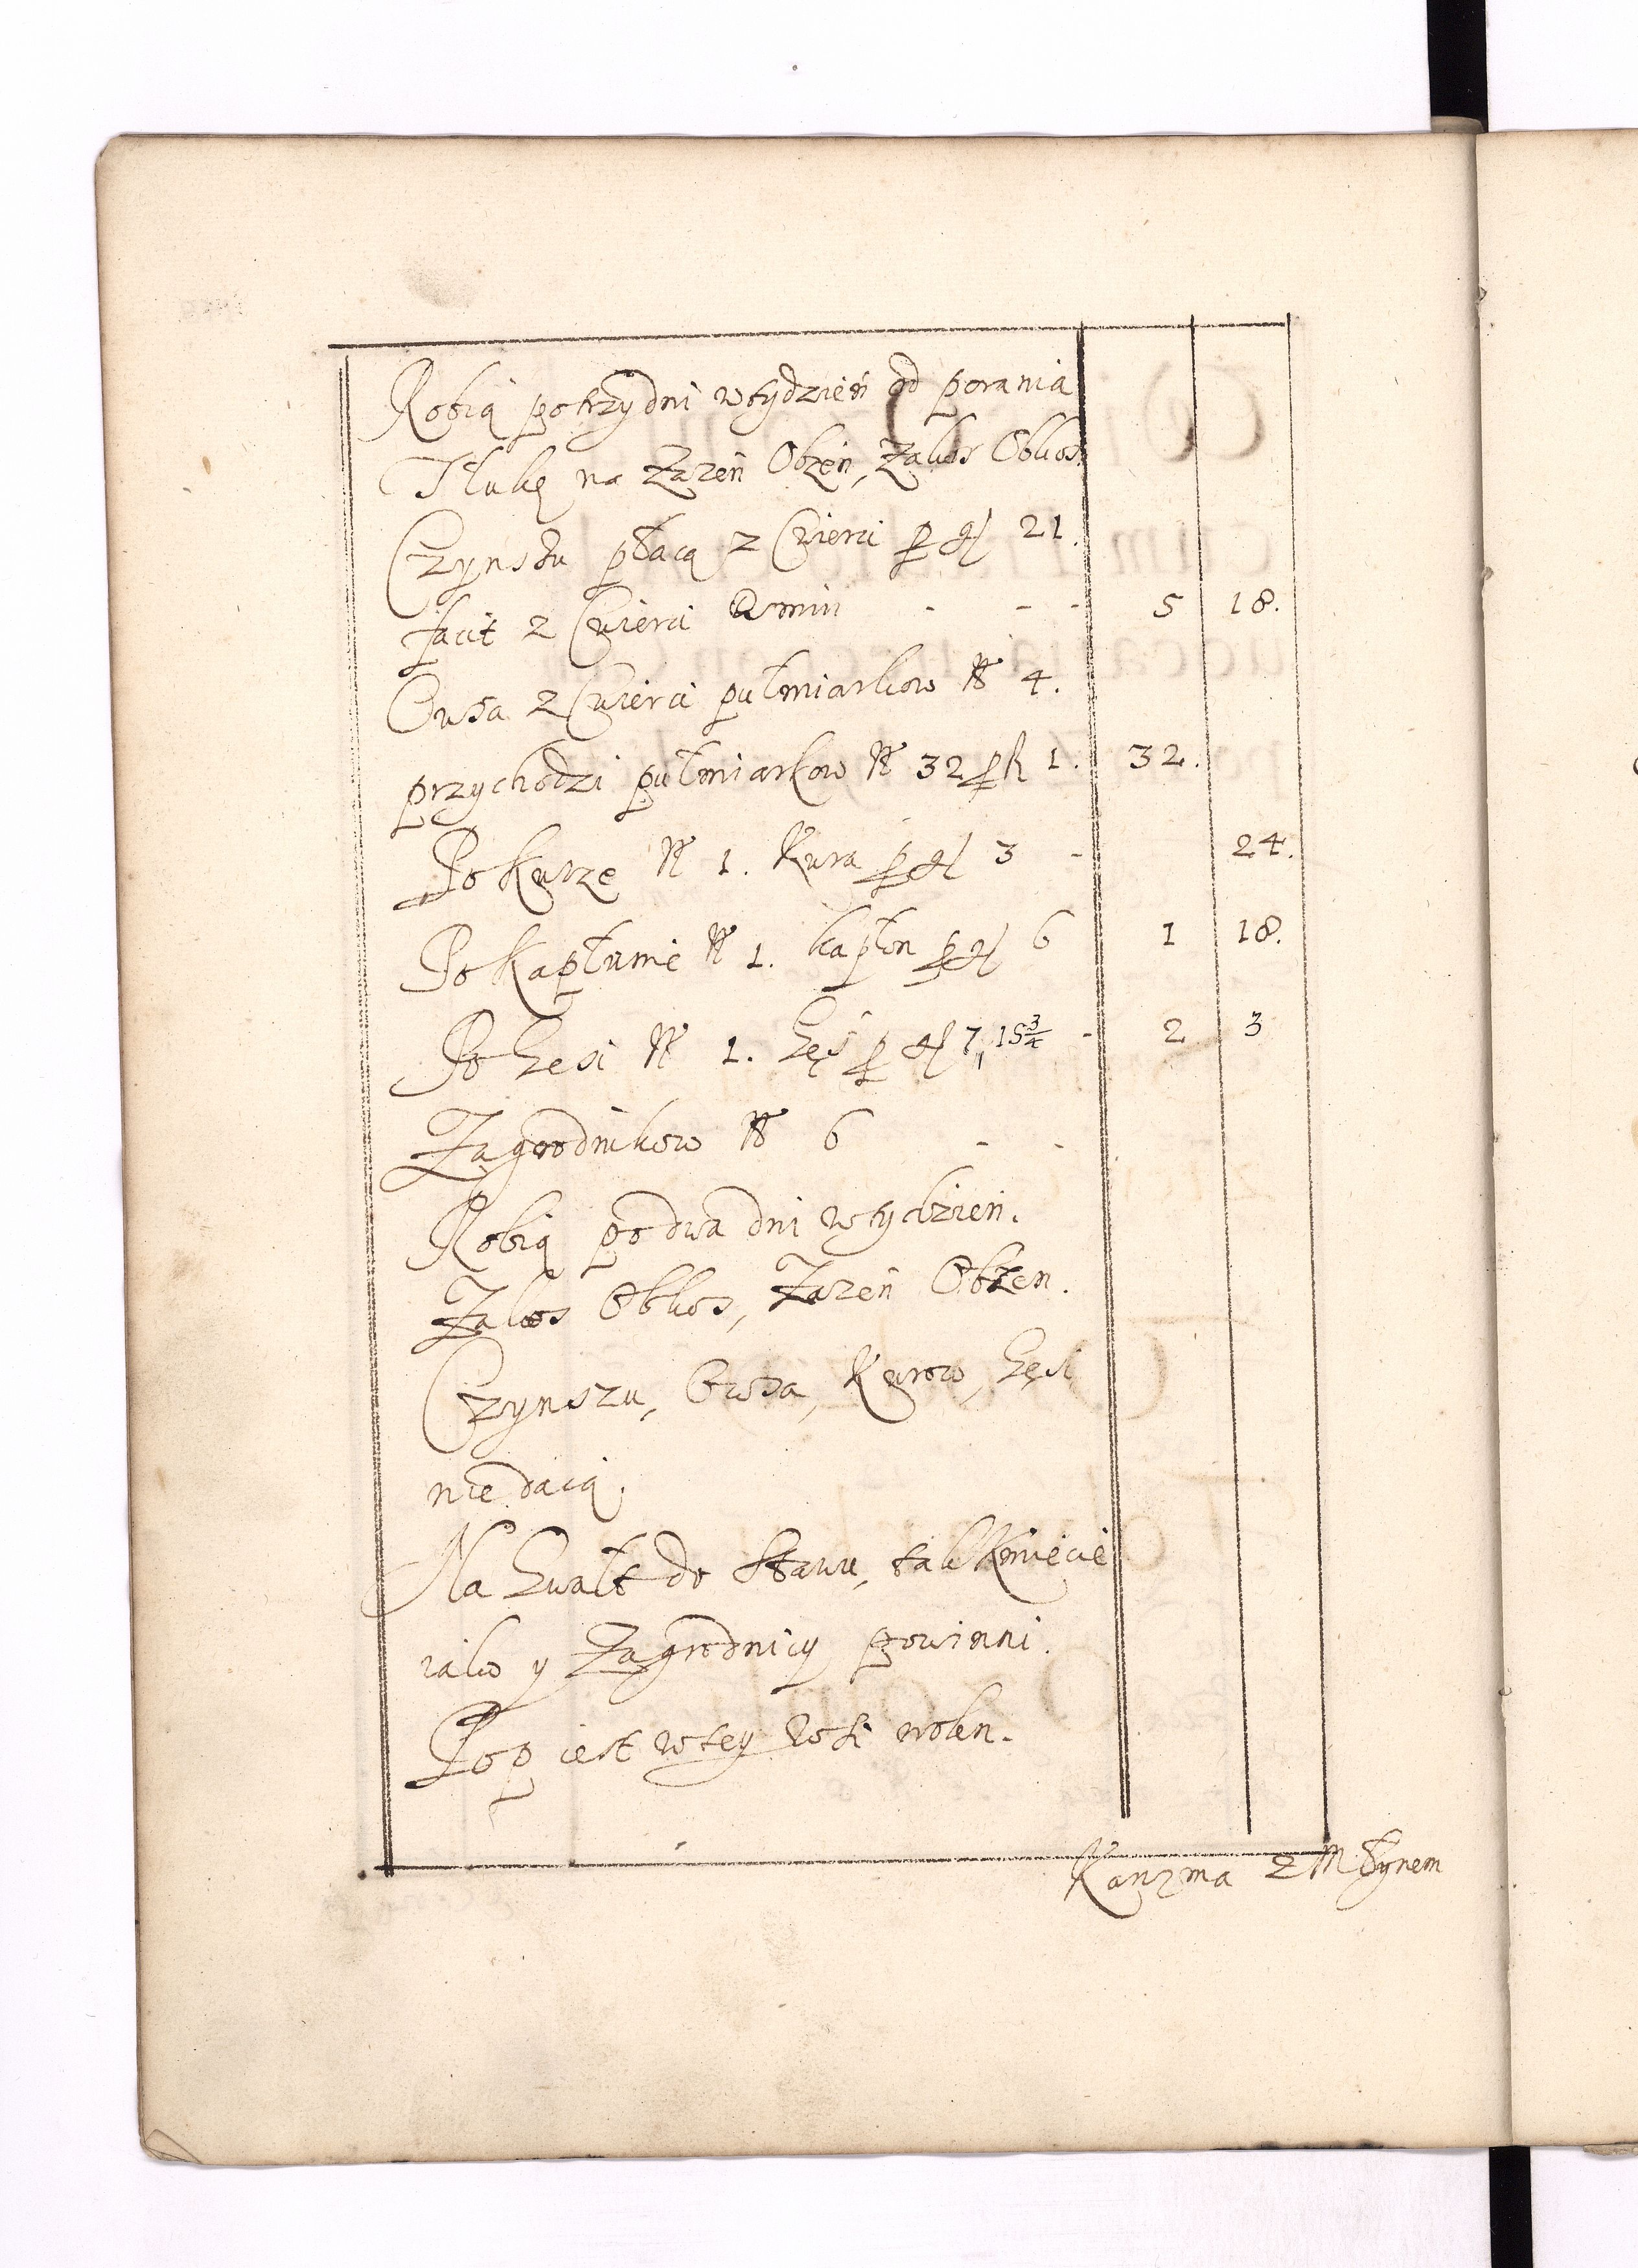 Robią potrzy dni wtydzień od porania
Tłukę na Zarzen Obżen, Zakos Obkos.
Czynszu płacą z Cwierci p gl 21.
facit z Cwierci Osmiu - - - 5 18.
Owsa z Cwierci pułmiarkow No 4.
przychodzi pułmiarkow No 32 p fl 1. 32.
Po Kurze No 1. Kura p gl 3 - 24.
Po Kapłunie No 1. kapłon p gl 6 1 18.
Po Gesi No 1. Gęś p gl 7„ 15 3/4 - 2 3
Zagrodnikow No 6 - -
Robią po dwa dni wtydzień.
Zakos Obkos, Zarzen Obżen.
Czynszu, Owsa, Kurow, Gęsi
nie daią.
Na Gwałt do Stawu, tak Kmiecie
iako y Zagrodnicy powinni.
Pop iest wtey Wsi wolen.
Karczma z Młynem